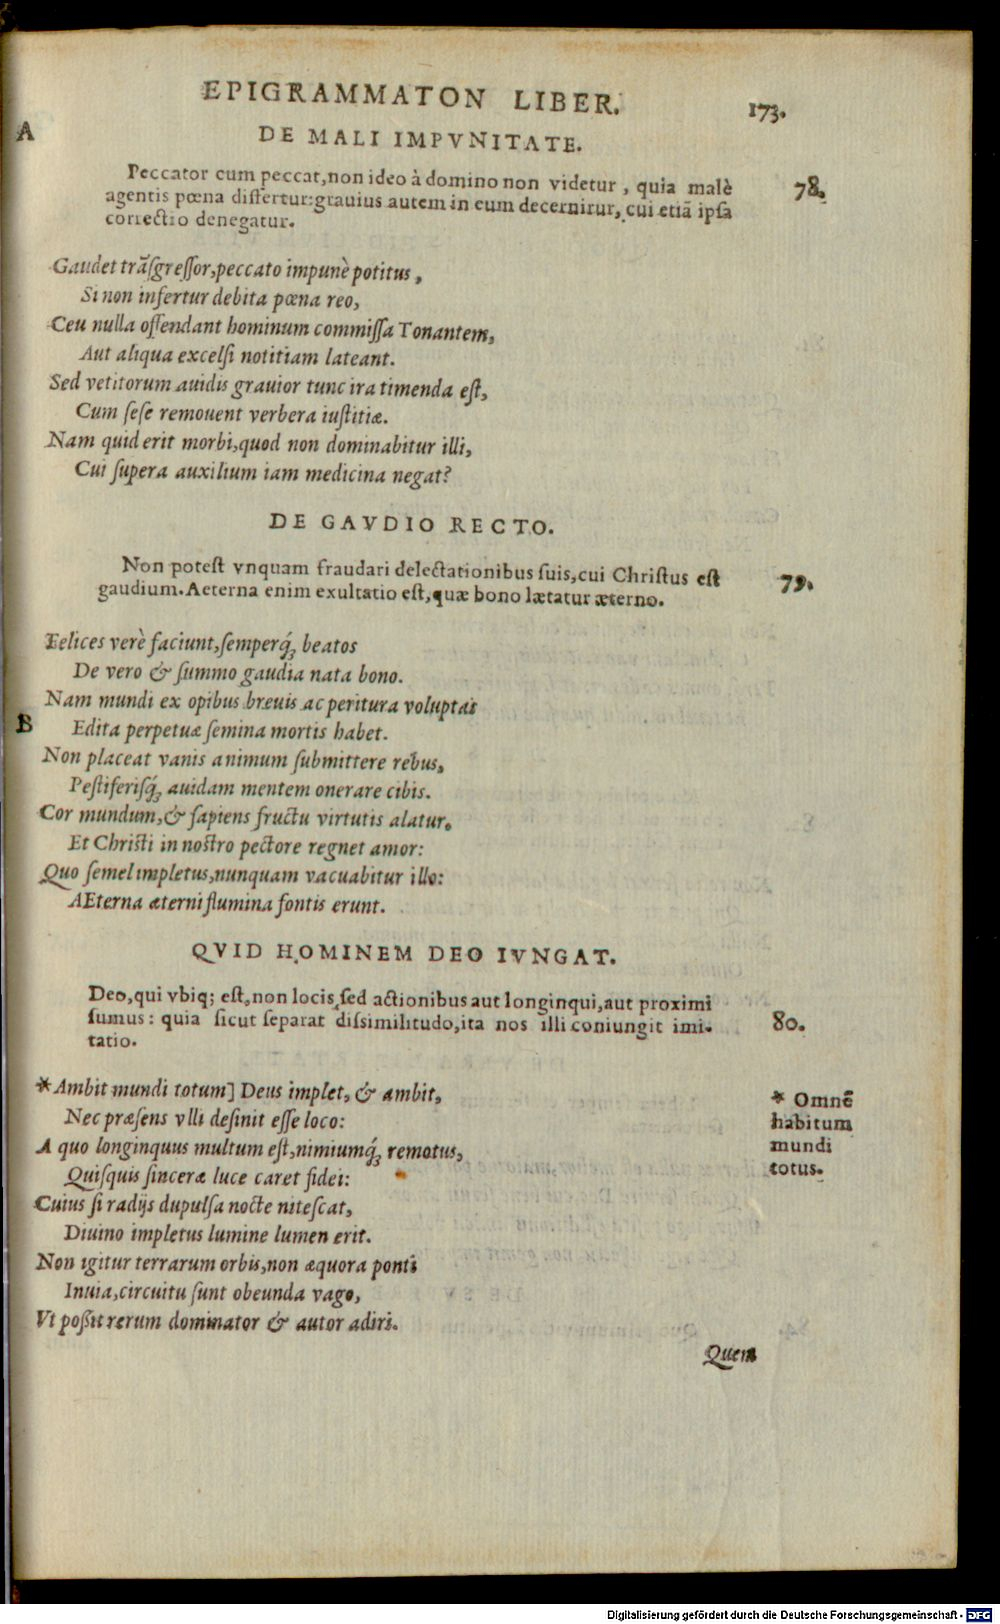 EPIGRAMMATON LIBER. 173.
A
DE MALI IMPVNITATE.
Peccator cum peccat, non ideo à domino non videtur, quia malè 78.
agentis pœna differtur: grauius autem in eum decernitur, cui etiã ipsa
correctio denegatur.
Gaudet trãsgressor, peccato impunè potitus,
Si non infertur debita pœna reo,
Ceu nulla offendant hominum commissa Tonantem,
Aut aliqua excelsi notitiam lateant.
Sed vetitorum auidis grauior tunc ira timenda est,
Cum sese remouent verbera iustitiæ.
Nam quid erit morbi, quod non dominabitur illi,
Cui supera auxilium iam medicina negat?
DE GAVDIO RECTO.
Non potest vnquam fraudari delectationibus suis, cui Christus est 79.
gaudium. Aeterna enim exultatio est, quæ bono lætatur æterno.
Felices verè faciunt, semperq́; beatos
De vero & summo gaudia nata bono.
Nam mundi ex opibus breuis ac peritura voluptas
B
Edita perpetuæ semina mortis habet.
Non placeat vanis animum submittere rebus,
Pestiferisq́; auidam mentem onerare cibis.
Cor mundum, & sapiens fructu virtutis alatur.
Et Christi in nostro pectore regnet amor:
Quo semel impletus, nunquam vacuabitur illo:
AEterna æterni flumina fontis erunt.
QVID HOMINEM DEO IVNGAT.
Deo, qui vbiq; est, non locis, sed actionibus aut longinqui, aut proximi
sumus: quia sicut separat dissimilitudo, ita nos illi coniungit imi- 80.
tatio.
*Ambit mundi totum] Deus implet, & ambit,
Nec præsens vlli desinit esse loco:
A quo longinquus multum est, nimiumq́; remotus,
Quisquis sinceræ luce caret fidei:
Cuius si radijs dupulsa nocte nitescat,
Diuino impletus lumine lumen erit.
Non igitur terrarum orbis, non æquora ponti
Inuia, circuitu sunt obeunda vago,
Vt possit rerum dominator & autor adiri.
* Omnẽ
habitum
mundi
totus.
Quem
Digitalisierung gefördert durch die Deutsche Forschungsgemeinschaft - DFG